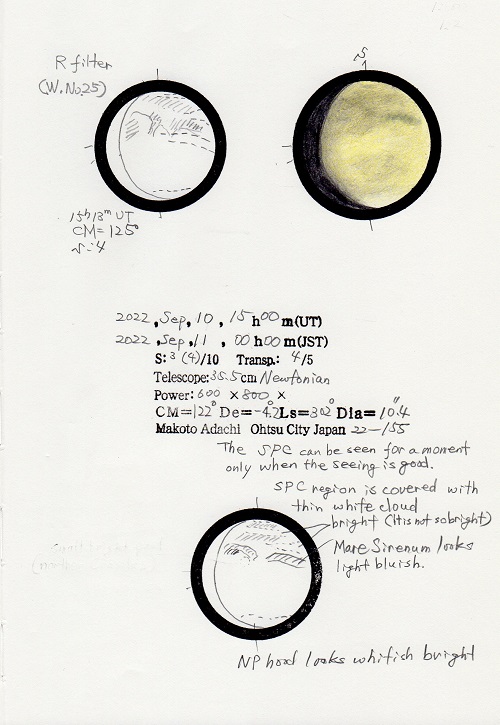 R filter
(W.No.25)
S
15h 13m UT
CM=125°
S=4
2022, Sep, 10, 15h00m(UT)
2022, Sep, 11, 00h00m(JST)
S: 3 (4)/10 Transp.: 4/5
Telescope: 35.5cm Newtonian
Power: 600 × 800 ×
CM=122° De=-4.2° Ls=302° Dia=10.4"
Makoto Adachi Ohtsu City Japan 22-155
The SPC can be seen for a moment
only when the seeing is good.
SPC region is covered with
thin white cloud
bright (It is not so bright)
Mare Sirenum looks
light bluish.
NP hood looks whitish bright